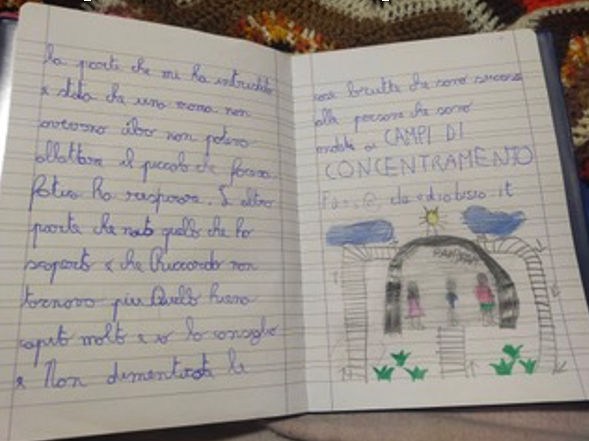 la parte che mi ha intristito
è stata che una mamma non
avevano cibo non poteva
allattare il piccolo che faceva
fatica ha respirare. L altra
parte che
scoperto è che Riccardo non
tornava più Quello hanno
capito molto e io lo consiglio
e Non dimenticate le
cose brutte che sono successe
alle persone che sono
andate ai CAMPI DI
CONCENTRAMENTO